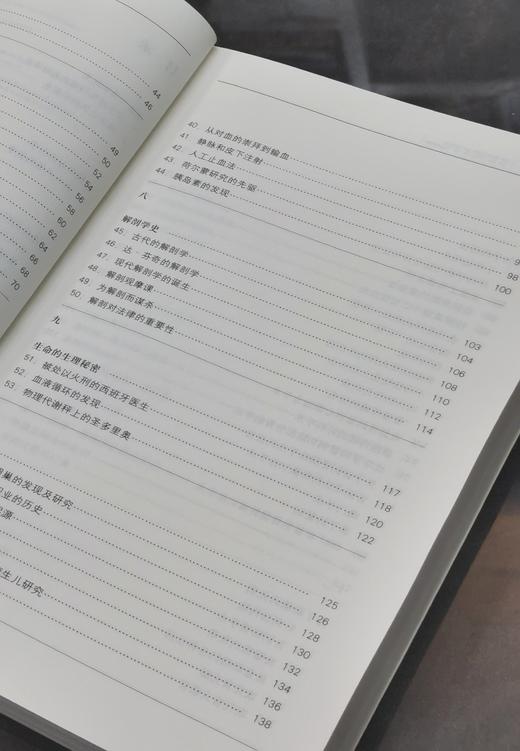 44
46
49
50
52
54
56
58
60
62
64
66
68
70
40. 从对血的崇拜到输血
41. 静脉和皮下注射
42. 人工止血法
43. 荷尔蒙研究的先驱 98
44. 胰岛素的发现 100
八
解剖学史 103
45. 古代的解剖学 104
46. 达·芬奇的解剖学 106
47. 现代解剖学的诞生 108
48. 解剖观摩课 110
49. 为解剖而谋杀 112
50. 解剖对法律的重要性 114
九
生命的生理秘密 117
51. 被处以火刑的西班牙医生 118
52. 血液循环的发现 120
53. 物理代谢秤上的圣多里奥 122
125
巢的发现及研究 126
业的历史 128
源 130
132
生儿研究 134
136
138